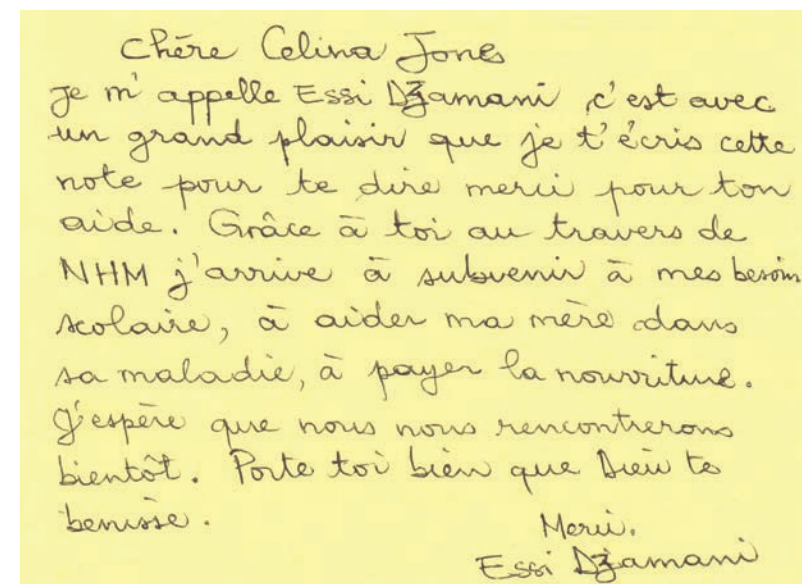 Chère Celina Jones
Je m'appelle Essi Dzamani, c'est avec
un grand plaisir que je t'écris cette
note pour te dire merci pour ton
aide. Grâce à toi au travers de
NHM j'arrive à subvenir à mes besoin
scolaire, à aider ma mère dans
sa maladie, à payer la nourriture.
J'espère que nous nous rencontrerons
bientôt. Porte toi bien que Dieu te
benisse.
Merci.
Essi Dzamani